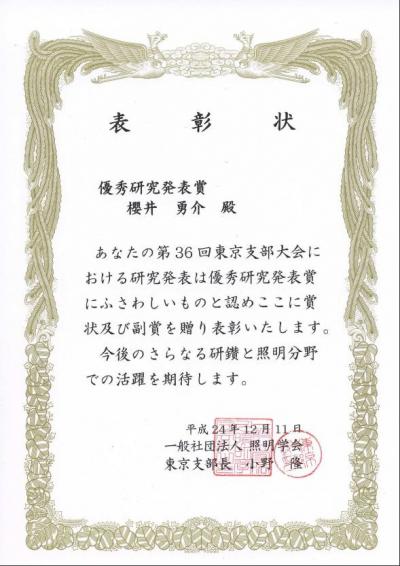 表彰状
優秀研究発表賞
櫻井 勇介 殿
あなたの第36回東京支部大会に
おける研究発表は優秀研究発表賞
にふさわしいものと認めここに賞
状及び副賞を贈り表彰いたします。
今後のさらなる研鑽と照明分野
での活躍を期待します。
平成24年12月11日
一般社団法人 照明学会
東京支部長 小野 隆